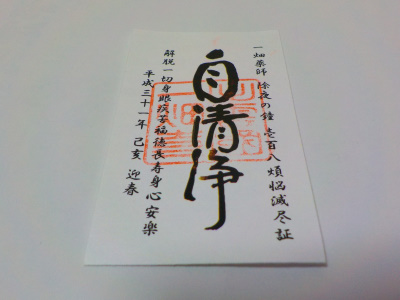 一畑薬師 除夜の鐘 壱百八煩悩滅尽証
自清浄
解脱一切身眼疾苦福徳長寿身心安楽
平成三十一年 己亥 迎春